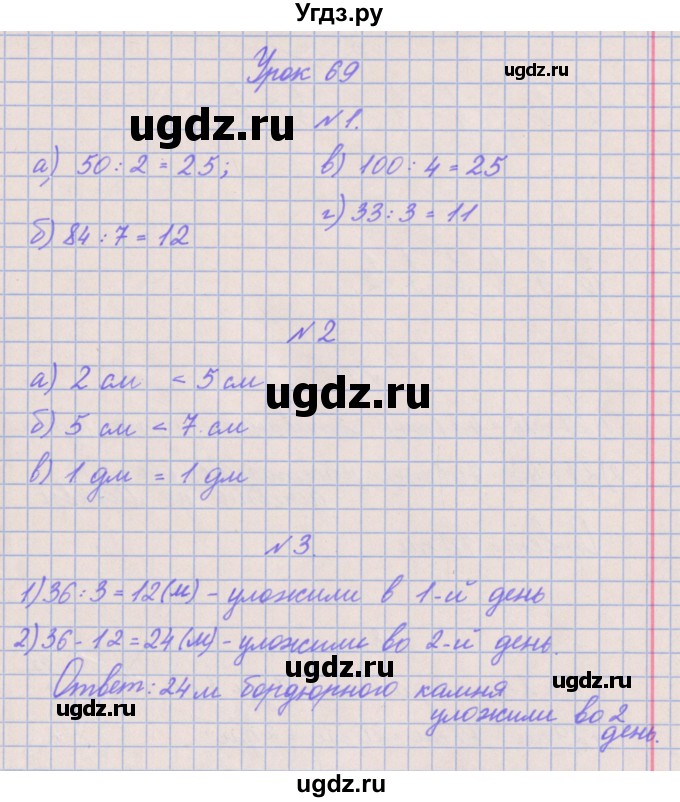 Угдз.ру
Урок 69
ugdz.ru
ugdz.ru
№1.
а) 50 : 2 = 25;
в) 100 : 4 = 25
г) 33 : 3 = 11
б) 84 : 7 = 12
№2
а) 2 см < 5 см
ugdz.ru
б) 5 см < 7 см
в) 1 дм = 1 дм
№3.
1) 36 : 3 = 12 (м) - уложили в 1-й день
2) 36 - 12 = 24 (м) - уложили во 2-й день.
ugdz.ru
ugdz.ru
Ответ: 24 м бордюрного камня
ugdz.ru
уложили во 2
ugdz.ru
день.
ugdz.ru